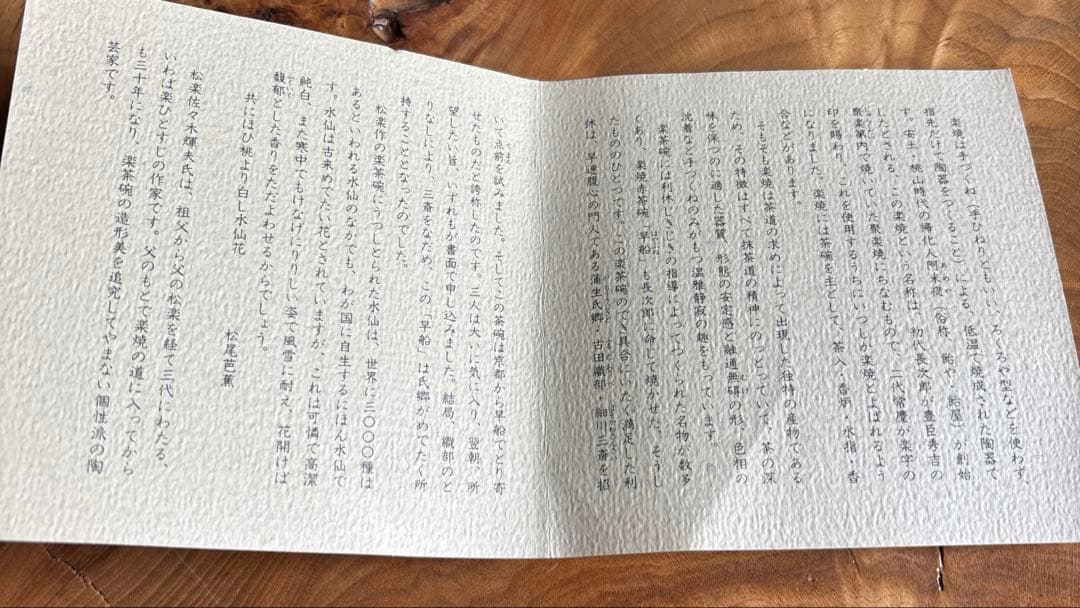 楽焼は手づくね(手ひねりともいい、ろくろや型などを使わず、
指先だけで陶器をつくること)による、低温で焼成された陶器で
す。安土・桃山時代の帰化人阿米夜(俗称、飴や・飴屋)が創始
したとされる、この楽焼という名称は、初代長次郎が豊臣秀吉の
聚楽第内で焼いていた聚楽焼にちなむもので、二代常慶が楽字の
印を賜わり、これを使用するうちにいつしか楽焼とよばれるよう
になりました。楽焼には茶碗を主として、茶入・香炉・水指・香
合などがあります。
そもそも楽焼は茶道の求めによって出現した独特の産物である
ため、その特徴はすべて抹茶道の精神にのっとっていて、茶の深
味を保つのに適した器質、形態の安定感と融通無碍の形、色相の
沈着など手づくねのみがもつ温雅静寂の趣をもっています。
楽茶碗には利休じきじきの指導によってつくられた名物が数多
くあり、楽焼赤茶碗「早船」も長次郎に命じて焼かせた、そうし
たもののひとつです。この楽茶碗のでき具合にいたく満足した利
休は、早速腹心の門人である蒲生氏郷・古田織部・細川三斎を招
いて点前を試みました。そしてこの茶碗は京都から早船でとり寄
せたものだと誇称したのです。三人は大いに気に入り、翌朝、所
望したい旨、いずれもが書面で申し込みました。結局、織部のと
りなしにより、三斎をなだめ、この「早船」は氏郷がめでたく所
持することとなったのでした。
松楽作の楽茶碗にうつしとられた水仙は、世界に三〇〇〇種は
あるといわれる水仙のなかでも、わが国に自生するにほん水仙で
す。水仙は古来めでたい花とされていますが、これは可憐で高潔
純白、また寒中でもけなげにりりしい姿で風雪に耐え、花開けば
馥郁とした香りをただよわせるからでしょう。
共にほひ桃より白し水仙花
松尾芭蕉
松楽佐々木輝夫氏は、祖父から父の松楽を経て三代にわたる、
いわば楽ひとすじの作家です。父のもとで楽焼の道に入ってから
も三十年になり、楽茶碗の造形美を追究してやまない個性派の陶
芸家です。